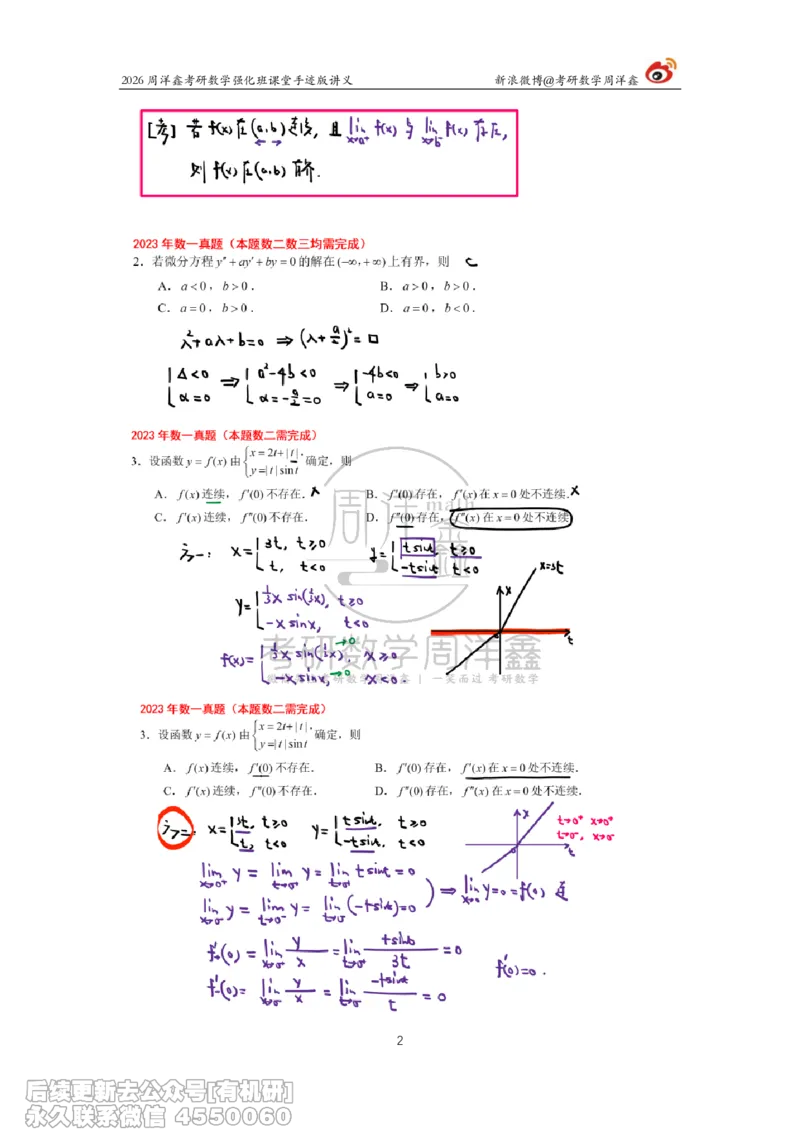 2026 周洋鑫考研数学强化班课堂手迹版讲义 新浪微博@考研数学周洋鑫
[考] 若 f(x) 在 (a,b) 连续, 且 lim x→a⁺ f(x) 与 lim x→b⁻ f(x) 存在,
则 f(x) 在 (a,b) 有界.
2023 年数一真题（本题数二数三均需完成）
2．若微分方程 y″+ay′+by=0 的解在 (−∞,+∞) 上有界，则 C
A．a<0，b>0． B．a>0，b>0．
C．a=0，b>0． D．a=0，b<0．
λ²+aλ+b=0 ⇒ (λ+a/2)²=□
{Δ<0 α=0 ⇒ {a²-4b<0 α=-a/2=0 ⇒ {-4b<0 a=0 ⇒ {b>0 a=0
2023 年数一真题（本题数二需完成）
3．设函数 y=f(x) 由 {x=2t+|t|, y=|t|sin t 确定，则
A．f(x) 连续，f′(0) 不存在．× B．f′(0) 存在，f′(x) 在 x=0 处不连续．×
C．f′(x) 连续，f″(0) 不存在． D．f″(0) 存在，f″(x) 在 x=0 处不连续
法一: x={3t, t≥0 t, t<0 y={tsint, t≥0 -tsint, t<0
x=3t
y={⅓x sin(⅓x), t≥0 -x sinx, t<0
x
t
f(x)={⅓x sin(⅓x), →0 x≥0 -x sinx, →0 x<0.
周洋鑫
math
考研数学周洋鑫
一笑而过 考研数学
2023 年数一真题（本题数二需完成）
3．设函数 y=f(x) 由 {x=2t+|t|, y=|t|sin t 确定，则
A．f(x) 连续，f′(0) 不存在． B．f′(0) 存在，f′(x) 在 x=0 处不连续．
C．f′(x) 连续，f″(0) 不存在． D．f″(0) 存在，f″(x) 在 x=0 处不连续．
法二: x={3t, t≥0 t, t<0 y={tsint, t≥0 -tsint, t<0
x
t
t→0⁺ x→0⁺
t→0⁻, x→0⁻
lim x→0⁺ y = lim t→0⁺ y = lim t→0⁺ tsint = 0
lim x→0⁻ y = lim t→0⁻ y = lim t→0⁻ (-tsint)=0 ⇒ lim x→0 y=0=f(0) 连
f′₊(0) = lim x→0⁺ y/x = lim t→0⁺ tsint/3t = 0
f′(0)=0.
f′₋(0)= lim x→0⁻ y/x = lim t→0⁻ -tsint/t = 0
2
后续更新去公众号[有机研]
永久联系微信 4550060